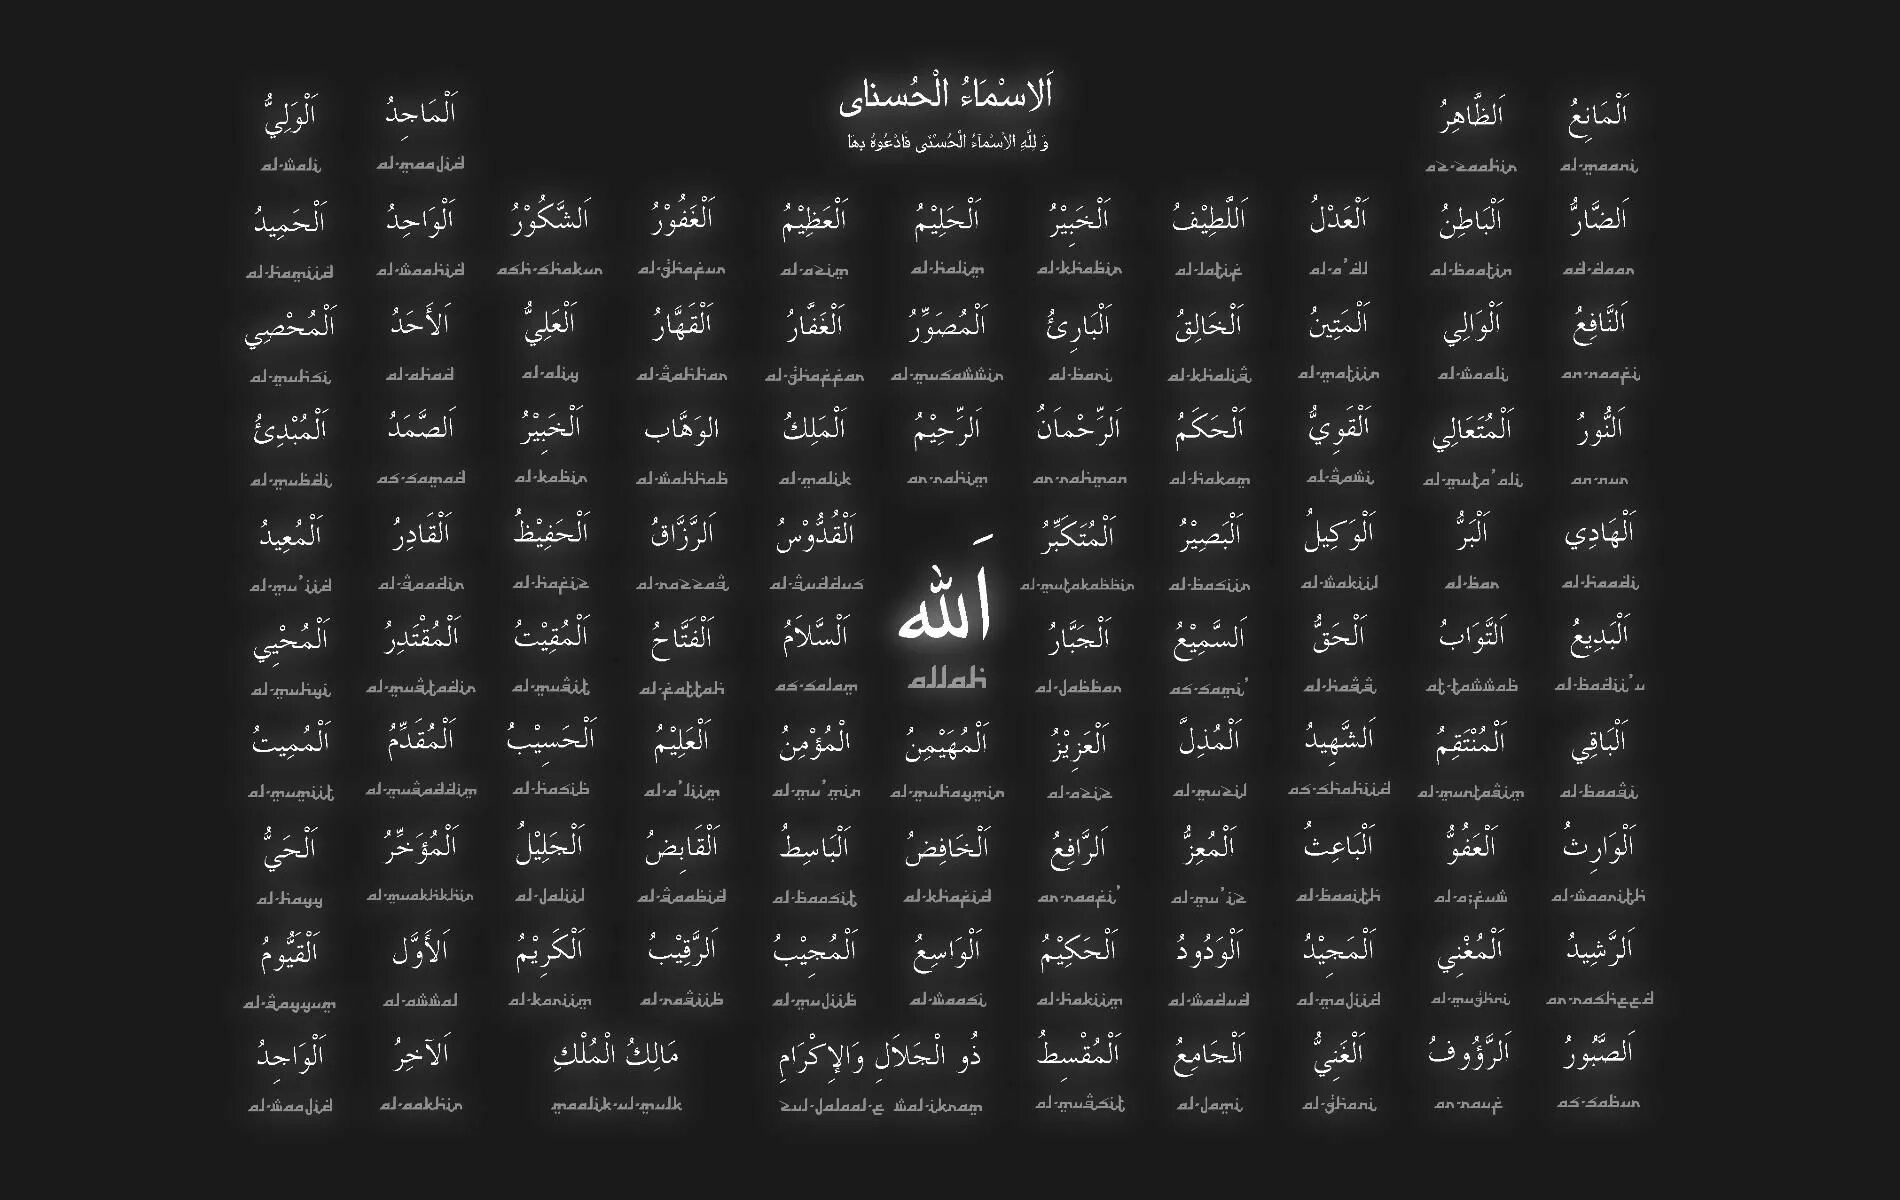 اَلاسْمَاءُ الْحُسناى
وَ لِلّٰهِ الاَسْمَآءُ الْحُسْنٰى فَادْعُوهُ بِهَا
اَلْوَلِيُّ اَلْمَاجِدُ اَلظَّاهِرُ اَلْمَانِعُ
al-wali al-maajid az-zaahir al-maani
اَلْحَمِيدُ اَلْوَاحِدُ اَلشَّكُوْرُ اَلْغَفُوْرُ اَلْعَظِيْمُ اَلْحَلِيْمُ اَلْخَبِيْرُ اَللَّطِيْفُ اَلْعَدْلُ اَلْبَاطِنُ اَلضَّارُّ
al-hamiid al-waahid ash-shakur al-ghafur al-azim al-halim al-khabir al-latif al-a'dl al-baatin ad-daar
اَلْمُحْصِي اَلأَحَدُ اَلْعَلِيُّ اَلْقَهَّارُ اَلْغَفَّارُ اَلْمُصَوِّرُ اَلْبَارِئُ اَلْخَالِقُ اَلْمَتِينُ اَلْوَالِي اَلنَّافِعُ
al-muhsi al-ahad al-aliy al-qahhar al-ghaffar al-musawwir al-bari al-khaliq al-matiin al-waali an-naafi
اَلْمُبْدِئُ اَلصَّمَدُ اَلْخَبِيْرُ الوَهَّاب اَلْمَلِكُ اَلرِّحِيْمُ اَلرِّحْمانُ اَلْحَكَمُ اَلْقَوِيُّ اَلْمُتَعَالِي اَلنُّورُ
al-mubdi as-samad al-kabir al-wahhab al-malik ar-rahim ar-rahman al-hakam al-qawi al-muta'ali an-nur
اَلْمُعِيدُ اَلْقَادِرُ اَلْحَفِيْظُ اَلرَّزَّاقُ اَلْقُدُّوْسُ اَلْمُتَكَبِّرُ اَلْبَصِيْرُ اَلْوَكِيلُ اَلْبَرُّ اَلْهَادِي
al-mu'iid al-qaadir al-hafiz al-razzaq al-quddus al-mutakabbir al-basiir al-wakiil al-bar al-haadi
اَلله
اَلْمُحْيِي اَلْمُقْتَدِرُ اَلْمُقِيْتُ اَلْفَتَّاحُ اَلْسَّلاَمُ اَلْجَبَّارُ اَلسَّمِيْعُ اَلْحَقُّ اَلتَّوَابُ اَلْبَدِيعُ
al-muhyi al-muqtadir al-muqit al-fattah as-salam allah al-jabbar as-sami' al-haqq at-tawwab al-badii'u
اَلْمُمِيتُ اَلْمُقَدِّمُ اَلْحَسِيْبُ اَلْعَلِيْمُ الْمُؤْمِنُ اَلْمُهَيْمِنُ اَلْعَزِيْزُ اَلْمُذِلَّ اَلشَّهِيدُ اَلْمُنْتَقِمُ اَلْبَاقِي
al-mumiit al-muqaddim al-hasib al-a'liim al-mu'min al-muhaymin al-aziz al-muzil as-shahiid al-muntaqim al-baaqi
اَلْحَيُّ اَلْمُؤَخِّرُ اَلْجَلِيْلُ اَلْقَابِضُ اَلْبَاسِطُ اَلْخَافِضُ اَلرَّافِعُ اَلْمُعِزُّ اَلْبَاعِثُ اَلْعَفُوُّ اَلْوَارِثُ
al-hayy al-muakhkhir al-jaliil al-qaabid al-baasit al-khafid ar-raafi' al-mu'iz al-baaith al-waarith
اَلْقَيُّومُ اَلأَوَّل اَلْكَرِيْمُ اَلرَّقِيْبُ اَلْمُجِيْبُ اَلْوَاسِعُ اَلْحَكِيْمُ اَلْوَدُودُ اَلْمَجِيْدُ اَلْمُغْنِي اَلرَّشِيدُ
al-qayyum al-awwal al-kariim al-raqiib al-mujiib al-waasi al-hakiim al-wadud al-majiid al-mughni ar-rasheed
اَلْوَاجِدُ اَلآخِرُ مَالِكُ الْمُلْكِ ذُو الْجَلاَلِ وَالإِكْرَامِ اَلْمُقْسِطُ اَلْجَامِعُ اَلْغَنِيُّ اَلرَّؤُوفُ اَلصَّبُورُ
al-waajid al-aakhir maalik-ul-mulk zul-jalaal-e wal-ikram al-muqsit al-jami al-ghani ar-rauf as-sabur